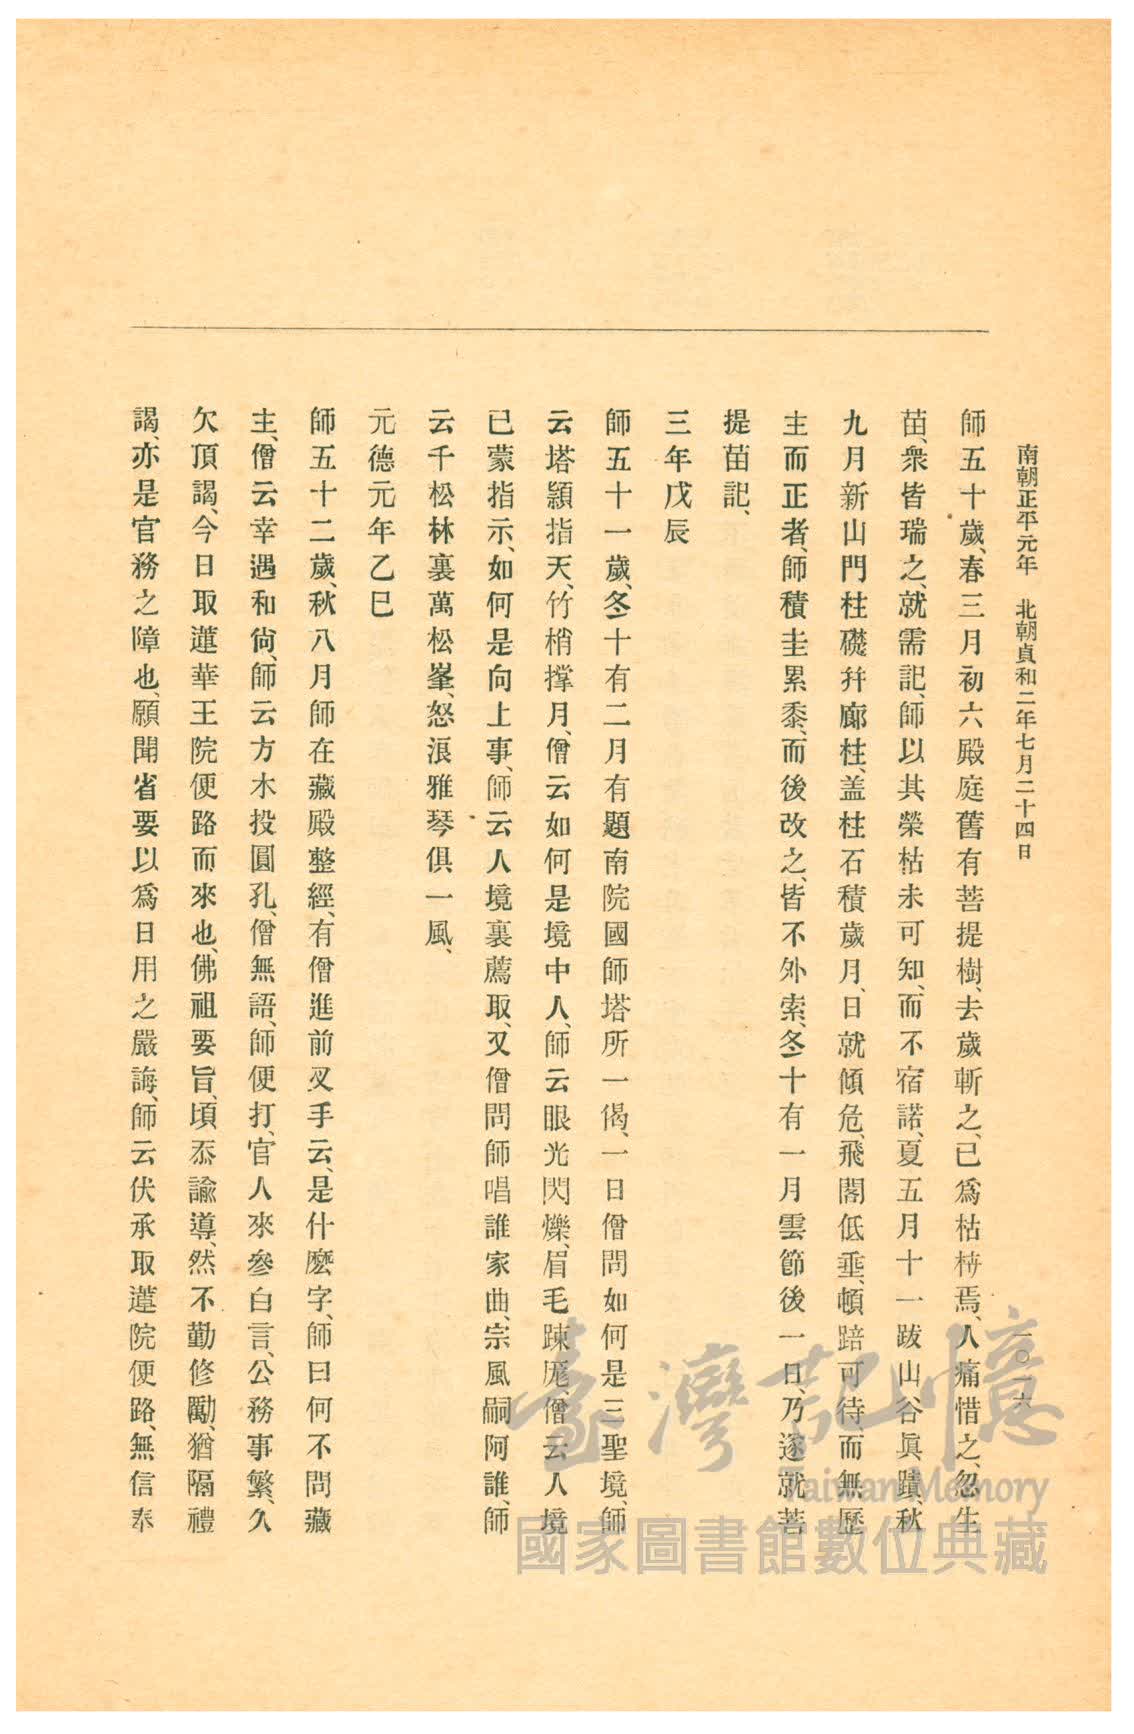 南朝正平元年　北朝貞和二年七月二十四日
一〇一六
師五十歲、春三月初六殿庭舊有菩提樹、去歲斬之、已爲枯枿焉、人痛惜之、忽生
苗、衆皆瑞之、就需記、師以其榮枯未可知、而不宿諾、夏五月十一跋山谷眞蹟、秋
九月新山門柱礎幷廊柱、盖柱石積歲月、日就傾危、飛閣低垂、頓踣可待、而無歷
主而正者、師積圭累黍、而後改之、皆不外索、冬十有一月雲節後一日、乃遂就菩
提苗記、
三年戊辰
師五十一歲、冬十有二月有題南院國師塔所一偈、一日僧問如何是三聖境、師
云塔頴指天、竹梢撑月、僧云如何是境中人、師云眼光閃爍、眉毛踈厖、僧云人境
已蒙指示、如何是向上事、師云人境裏薦取、又僧問師唱誰家曲、宗風嗣阿誰、師
云千松林裏萬松峯、怒浪雅琴俱一風、
元德元年乙巳
師五十二歲、秋八月師在藏殿整經、有僧進前叉手云、是什麽字、師曰何不問藏
主、僧云幸遇和尙、師云方木投圓孔、僧無語、師便打、官人來參白言、公務事繁、久
欠頂謁、今日取蓮華王院便路而來也、佛祖要旨、頃忝諭導、然不勤修勵、猶隔禮
謁、亦是官務之障也、願聞省要以爲日用之嚴誨、師云伏承取蓮院便路、無信奉
臺灣記憶
Taiwan Memory
國家圖書館數位典藏